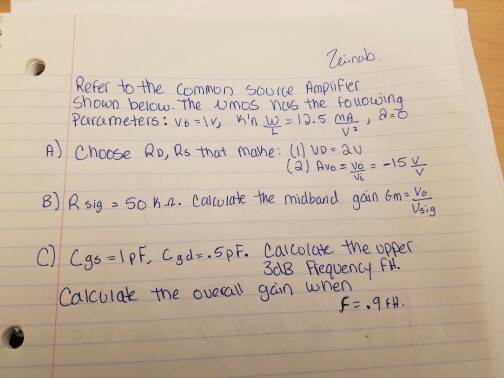 Zainab.
Refer to the Common Source Amplifier
shown below. The nmos has the following
Parameters: Vt=1V, K'n W/L = 12.5 mA/V², λ=0
A) Choose RD, Rs that make: (1) VD = 2V
(2) Avo = Vo/Vi = -15 V/V
B) R sig = 50 KΩ. Calculate the midband gain Gm = Vo/Vsig
C) Cgs = 1pF, Cgd = .5pF. Calculate the upper
3dB Frequency FH.
Calculate the overall gain when
f = .9 fH.